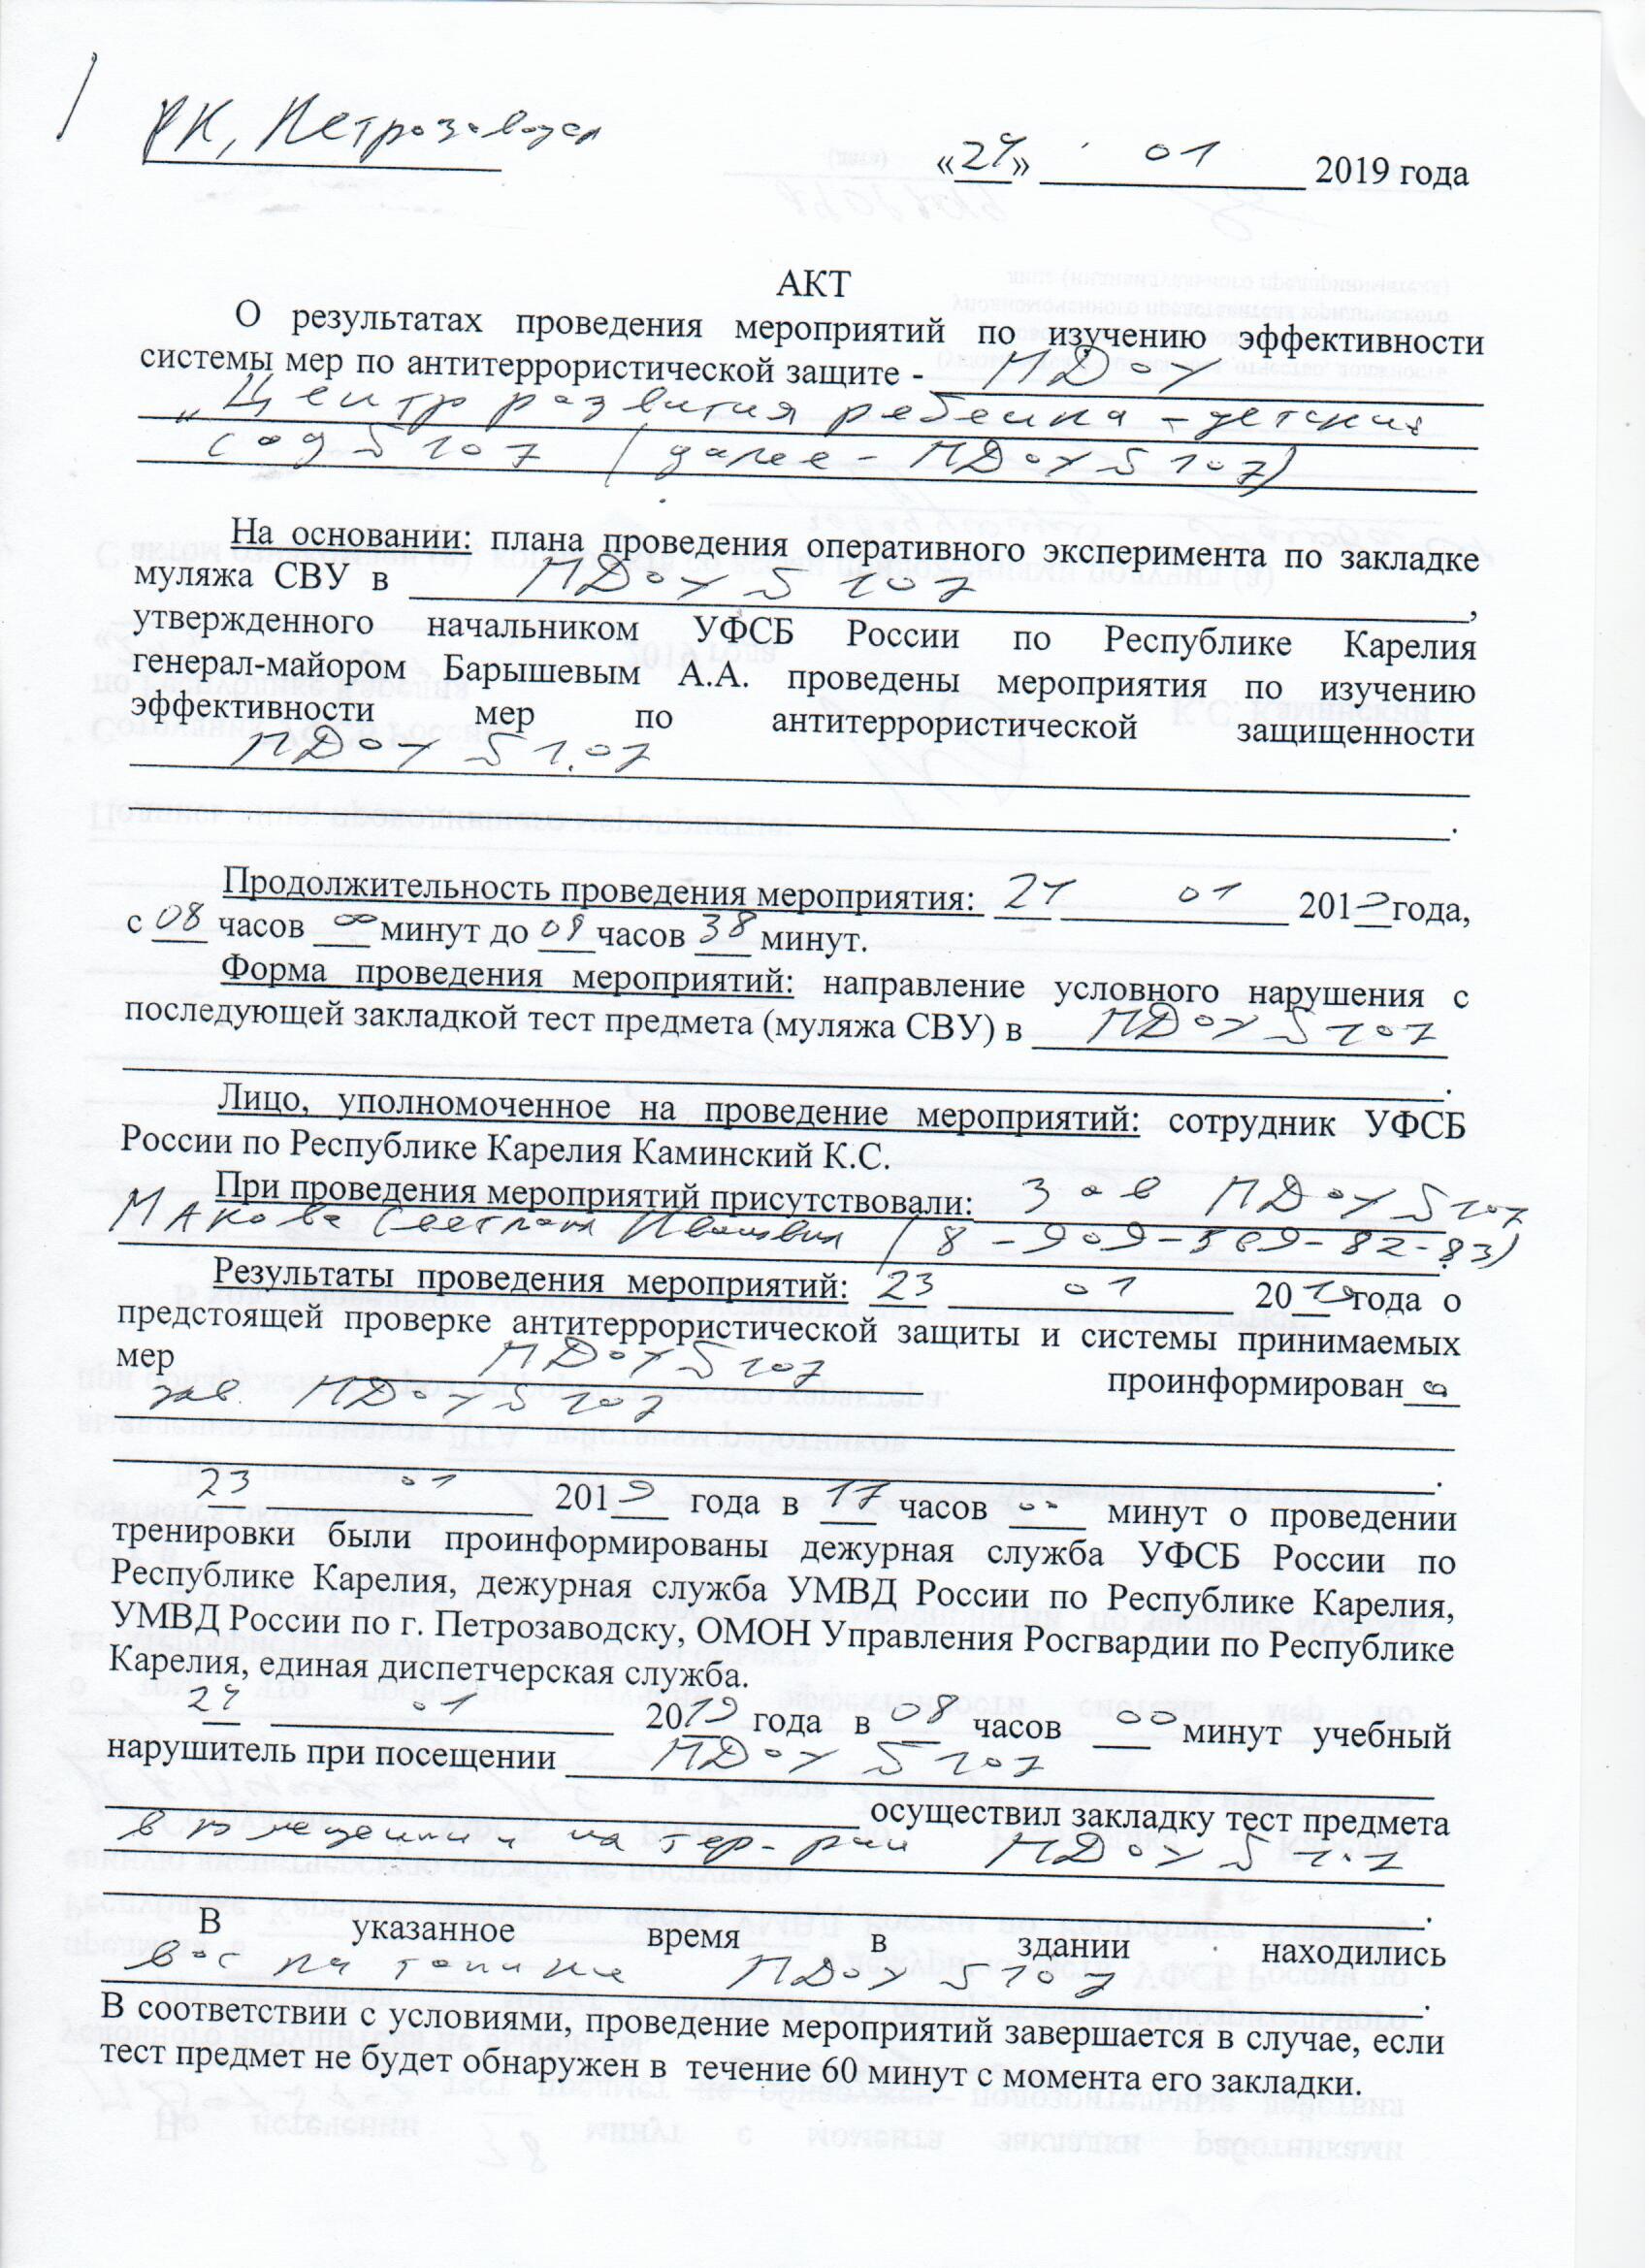 РК, Петрозаводск
«24» 01 2019 года
АКТ
О результатах проведения мероприятий по изучению эффективности
системы мер по антитеррористической защите - МДОУ
„Центр развития ребенка – детский
сад S 107 (далее – МДОУ S 107)
На основании: плана проведения оперативного эксперимента по закладке
муляжа СВУ в МДОУ S 107,
утвержденного начальником УФСБ России по Республике Карелия
генерал-майором Барышевым А.А. проведены мероприятия по изучению
эффективности мер по антитеррористической защищенности
МДОУ S 107
.
Продолжительность проведения мероприятия: 24 01 2019 года,
с 08 часов 00 минут до 08 часов 38 минут.
Форма проведения мероприятий: направление условного нарушения с
последующей закладкой тест предмета (муляжа СВУ) в МДОУ S 107
.
Лицо, уполномоченное на проведение мероприятий: сотрудник УФСБ
России по Республике Карелия Каминский К.С.
При проведения мероприятий присутствовали: Зав МДОУ S 107
Макова Светлана Ивановна (8-909-569-82-83).
Результаты проведения мероприятий: 23 01 2019 года о
предстоящей проверке антитеррористической защиты и системы принимаемых
мер МДОУ S 107 проинформирован а
зав МДОУ S 107
.
23 01 2019 года в 17 часов 00 минут о проведении
тренировки были проинформированы дежурная служба УФСБ России по
Республике Карелия, дежурная служба УМВД России по Республике Карелия,
УМВД России по г. Петрозаводску, ОМОН Управления Росгвардии по Республике
Карелия, единая диспетчерская служба.
24 01 2019 года в 08 часов 00 минут учебный
нарушитель при посещении МДОУ S 107
осуществил закладку тест предмета
в помещении и на тер-рии МДОУ S 107
.
В указанное время в здании находились
вос-ки МДОУ S 107.
В соответствии с условиями, проведение мероприятий завершается в случае, если
тест предмет не будет обнаружен в течение 60 минут с момента его закладки.